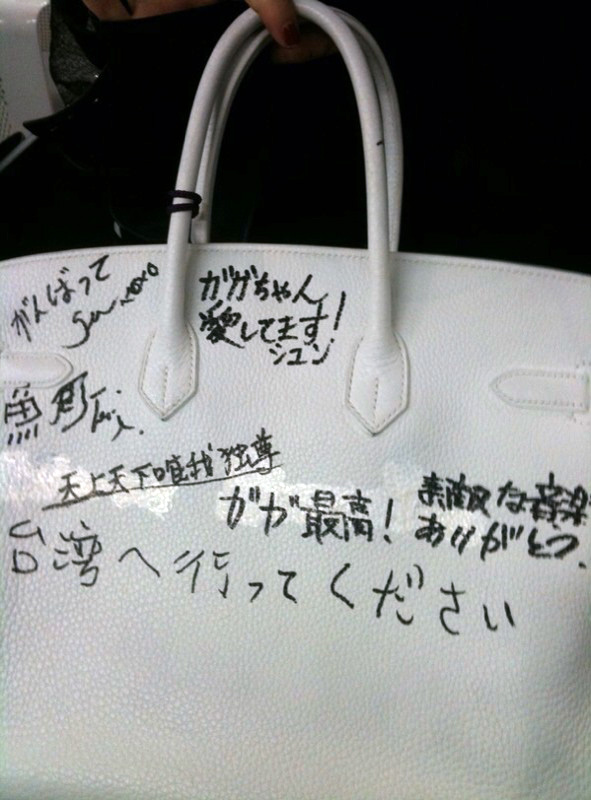 がんばって
xoxo
ガガちゃん
愛してます!
シュン
魚
天上天下唯我独尊
ガガ最高!
素敵な音楽
ありがとう.
台湾へ行ってください